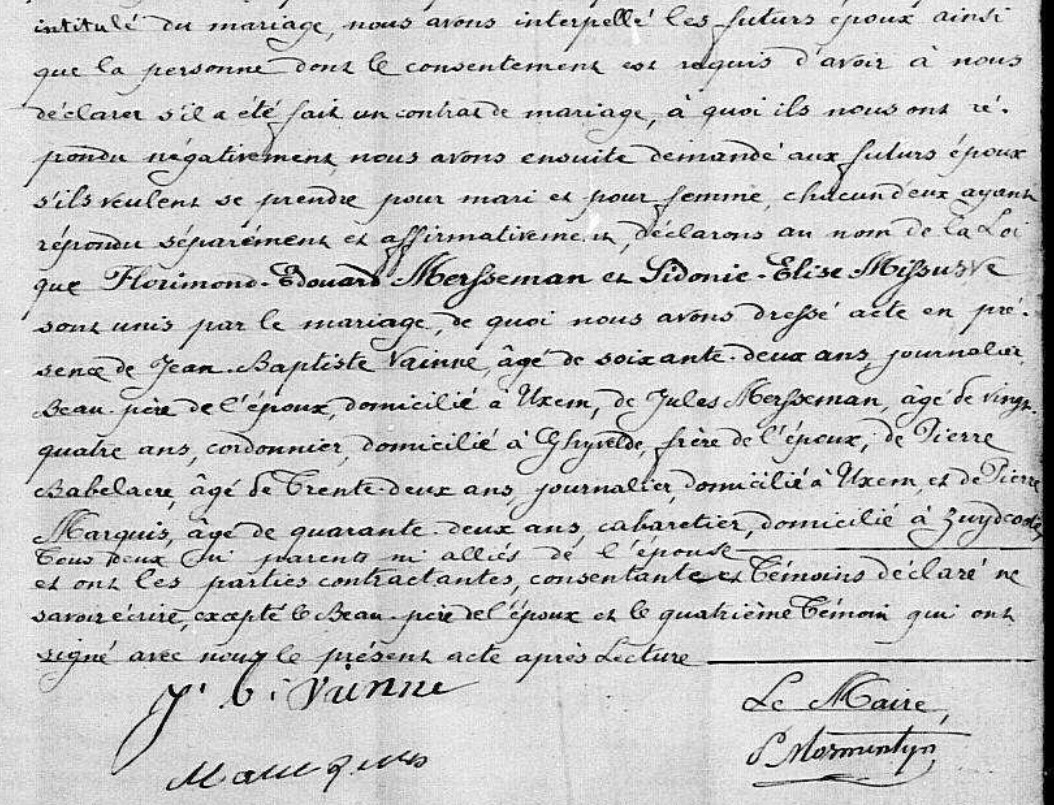 intitulé du mariage, nous avons interpellé les futurs époux ainsi
que la personne dont le consentement est requis d'avoir à nous
déclarer s'il a été fait un contrat de mariage, à quoi ils nous ont ré-
pondu négativement, nous avons ensuite demandé aux futurs époux
s'ils veulent se prendre pour mari et pour femme, chacun d'eux ayant
répondu séparément et affirmativement, déclarons au nom de la Loi
que Florimond-Edouard Mersseman et Sidonie-Elise Missuwe
sont unis par le mariage, de quoi nous avons dressé acte en pré-
sence de Jean-Baptiste Vainne, âgé de soixante-deux ans, journalier,
Beau-père de l'époux, domicilié à Uxem, de Jules Mersseman, âgé de vingt-
quatre ans, cordonnier, domicilié à Ghyvelde, frère de l'époux, de Pierre
Babelaere, âgé de Trente-deux ans, journalier, domicilié à Uxem, et de Pierre
Marquis, âgé de quarante-deux ans, cabaretier, domicilié à Zuydcoote,
Tous deux ni parents ni alliés de l'épouse
et ont les parties contractantes, consentante et Témoins déclaré ne
savoir écrire, excepté le Beau-père de l'époux et le quatrième Témoin qui ont
signé avec nous le présent acte après Lecture
J. b. Vainne
Le Maire,
Marquis